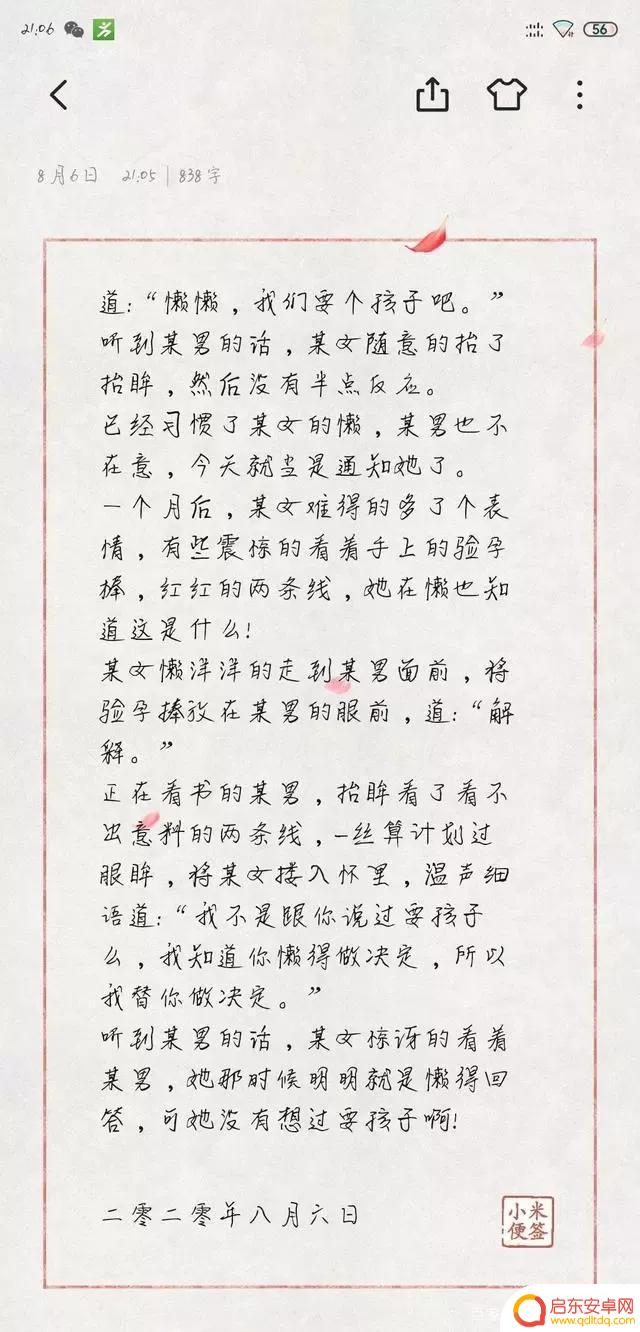 21:06
56
8月6日 21:05 | 838字
道:“懒懒，我们要个孩子吧。”
听到某男的话，某女随意的抬了
抬眸，然后没有半点反应。
已经习惯了某女的懒，某男也不
在意，今天就当是通知她了。
一个月后，某女难得的多了个表
情，有些震惊的看着手上的验孕
棒，红红的两条线，她在懒也知
道这是什么!
某女懒洋洋的走到某男面前，将
验孕棒放在某男的眼前，道:“解
释。”
正在看书的某男，抬眸看了看不
出意料的两条线，一丝算计划过
眼眸，将某女搂入怀里，温声细
语道:“我不是跟你说过要孩子
么，我知道你懒得做决定，所以
我替你做决定。”
听到某男的话，某女惊讶的看着
某男，她那时候明明就是懒得回
答，可她没有想过要孩子啊!
二零二零年八月六日
小米
便签
启东安卓网
www.qdltdq.com